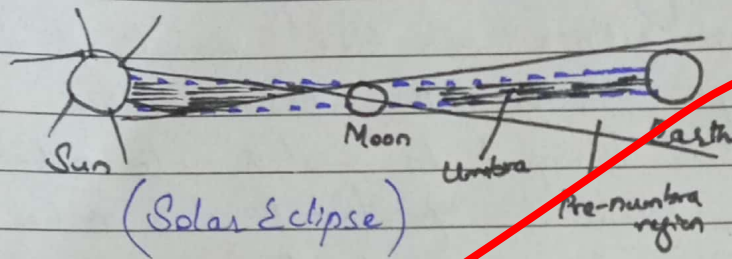 Sun
Moon
Umbra
Earth
Pre-numbra
region
(Solar Eclipse)